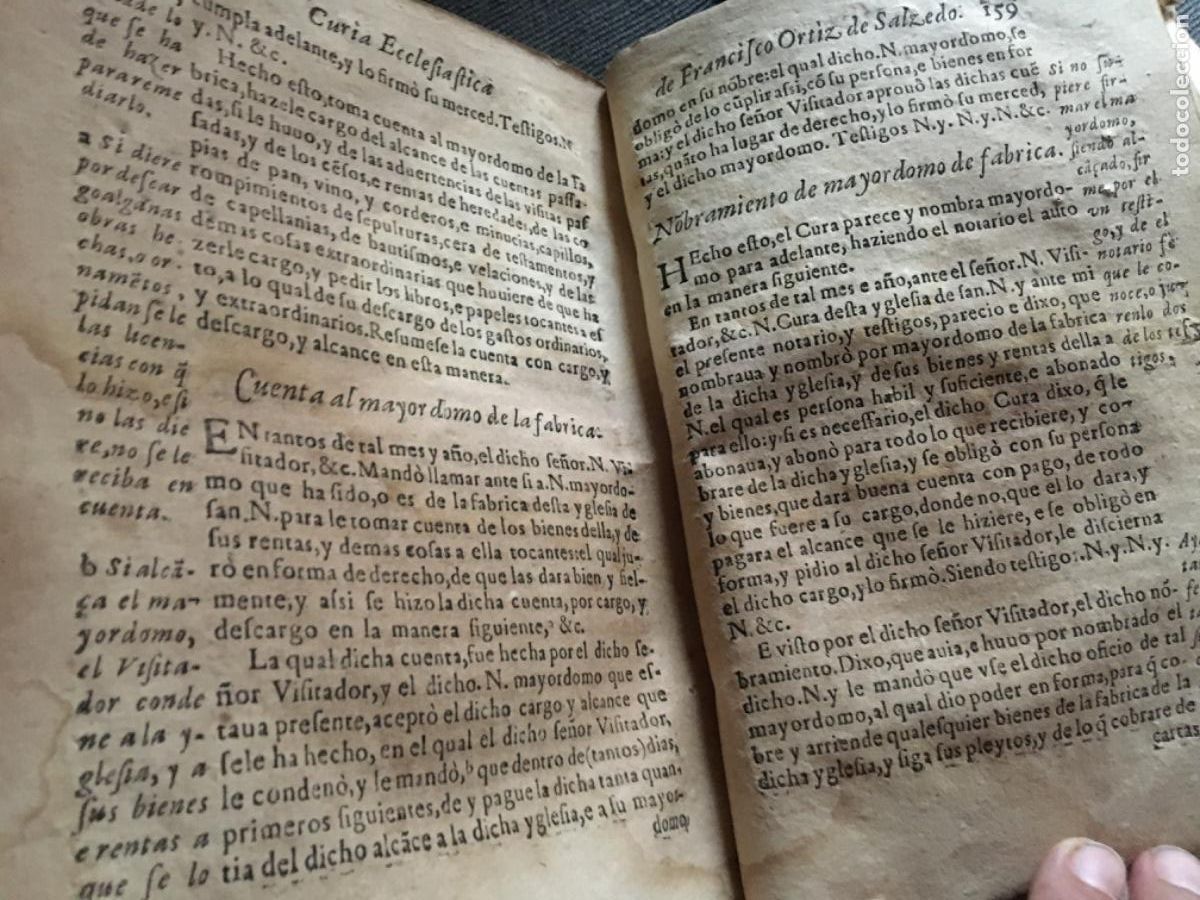 Curia Ecclesiastica
cumpla adelante, y lo firmò su merced. Testigos. N.
y. N. &c.
Hecho esto, toma cuenta al mayordomo de la fa
brica, hazele cargo del alcance de las cuentas passa-
das, si le huuo, y de las aduertencias de las visitas pas
sadas, y de los cēsos, e rentas de heredades, de las co
pias de pan, vino, y corderos, e minucias, capillos,
rompimientos de sepulturas, cera de testamentos, y
de capellanias, de bautismos, e velaciones, y de las
demas cosas extraordinarias que huuiere de que ha
zerle cargo, y pedir los libros, e papeles tocantes a es
to, a lo qual de su descargo de los gastos ordinarios,
y extraordinarios. Resumese la cuenta con cargo, y
descargo, y alcance en esta manera.
que se ha
de hazer
parareme
diarlo.
a Si diere
por descar
go algunas
obras he
chas, o or
namētos,
pidansele
las licen-
cias con q̄
lo hizo, e si
no las die
re, no se le
reciba en
cuenta.
Cuenta al mayordomo de la fabrica.
EN tantos de tal mes y año, el dicho señor. N. Vi-
sitador, &c. Mandò llamar ante si a. N. mayordo-
mo que ha sido, o es de la fabrica desta yglesia de
san. N. para le tomar cuenta de los bienes della, y de
sus rentas, y demas cosas a ella tocantes: el qual ju-
rò en forma de derecho, de que las dara bien y fiel-
mente, y assi se hizo la dicha cuenta, por cargo, y
descargo en la manera siguiente, ᵃ &c.
La qual dicha cuenta, fue hecha por el dicho se-
ñor Visitador, y el dicho. N. mayordomo que es-
taua presente, aceptò el dicho cargo y alcance que
sele ha hecho, en el qual el dicho señor Visitador,
le condenò, y le mandò, ᵇ que dentro de (tantos) dias,
primeros siguientes, de y pague la dicha tanta quan-
tia del dicho alcāce a la dicha yglesia, e a su mayor-
domo
b Si alcā-
ça el ma-
yordomo,
el Visita-
dor conde
ne a la y-
glesia, y a
sus bienes
e rentas a
que se lo
de Francisco Ortiz de Salzedo. 159
domo, en su nōbre: el qual dicho. N. mayordomo, se
obligò de lo cūplir assi, cō su persona, e bienes en for
ma: y el dicho señor Visitador aprouò las dichas cuē
tas, quāto ha lugar de derecho, y lo firmò su merced,
y el dicho mayordomo. Testigos N. y. N. y N. &c.
Nōbramiento de mayordomo de fabrica.
HEcho esto, el Cura parece y nombra mayordo-
mo para adelante, haziendo el notario el auto
en la manera siguiente.
En tantos de tal mes e año, ante el señor. N. Visi-
tador, &c. N. Cura desta yglesia de san. N. y ante mi
el presente notario, y testigos, parecio e dixo, que
nombraua y nombrò por mayordomo de la fabrica
de la dicha yglesia, y de sus bienes y rentas della a
N. el qual es persona habil y suficiente, e abonado
para ello: y si es necessario, el dicho Cura dixo, q̄ le
abonaua, y abonò para todo lo que recibiere, y co-
brare de la dicha yglesia, y se obligò con su persona
y bienes, que dara buena cuenta con pago, de todo
lo que fuere a su cargo, donde no, que el lo dara, y
pagara el alcance que se le hiziere, e se obligò en
forma, y pidio al dicho señor Visitador, le discierna
el dicho cargo, y lo firmò. Siendo testigo: . N. y. N. y.
N. &c.
E visto por el dicho señor Visitador, el dicho nō-
bramiento. Dixo, que auia, e huuo por nombrado el
dicho. N. y le mandò que vse el dicho oficio de tal
mayordomo, al qual dio poder en forma, para q̄ co-
bre y arriende qualesquier bienes de la fabrica de la
dicha yglesia, y siga sus pleytos, y de lo q̄ cobrare de
cartas
si no su-
piere fir-
mar el ma
yordomo,
siendo al-
cāçado, fir
me por el
vn testi-
go, y de el
notario fè
que le co-
noce, o ju-
renlo dos
de los tes-
tigos.
todocoleccion